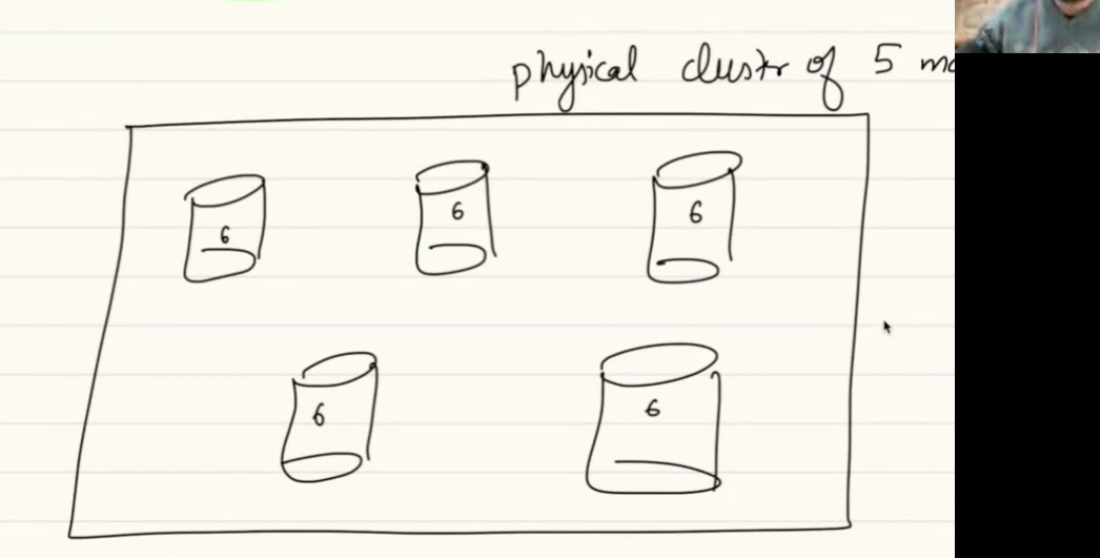 physical cluster of 5
6 6 6
6 6